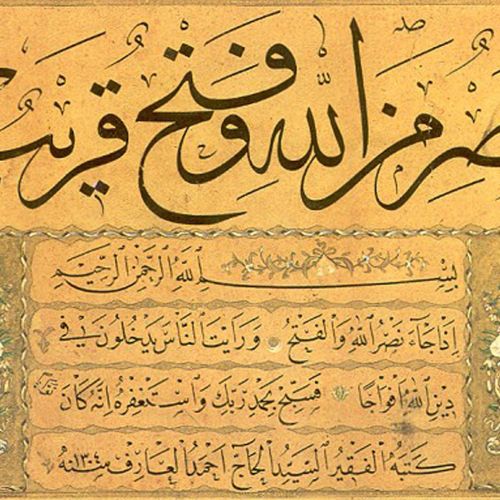 صر من الله وفتح قريب
بسم الله الرحمن الرحيم
اذا جاء نصر الله والفتح ورايت الناس يدخلون في
دين الله افواجا فسبح بحمد ربك واستغفره انه كان
كتبه الفقير السيد الحاج احمد العارف سنه ١٣٠٤